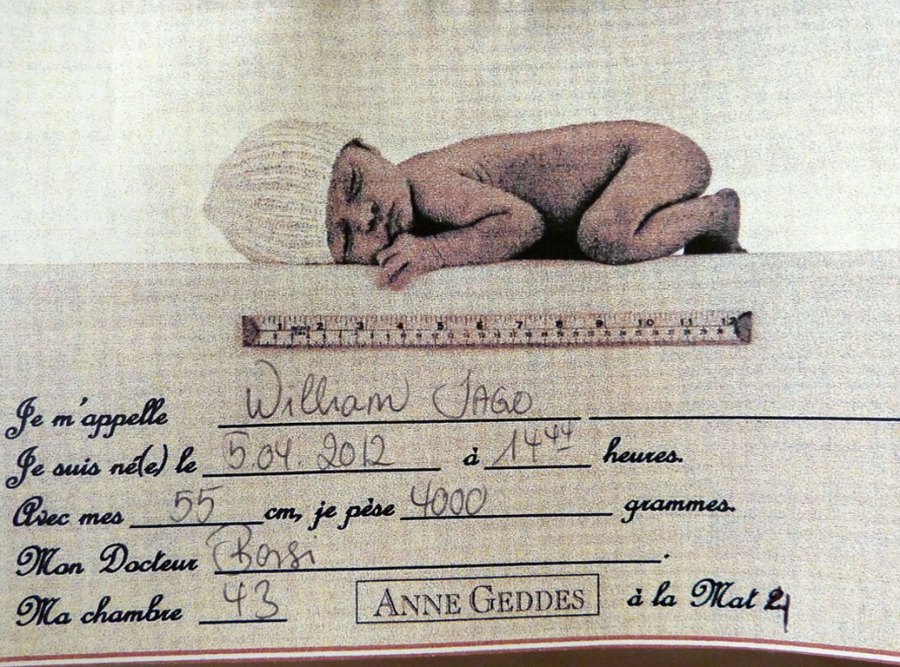 1 2 3 4 5 6 7 8 9 10 11 12
Je m'appelle William Jago
Je suis né(e) le 5.04.2012 à 14 44 heures.
Avec mes 55 cm, je pèse 4000 grammes.
Mon Docteur .
Ma chambre 43 ANNE GEDDES à la Mat